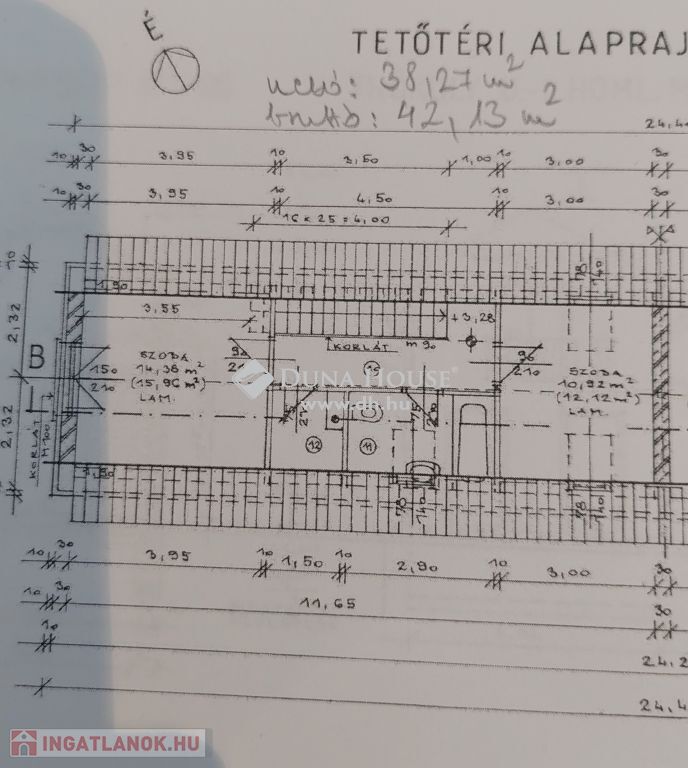 É
TETŐTÉRI ALAPRAJ
nettó: 38,27 m²
bruttó: 42,13 m²
24,4
10 30 3,95 10 3,50 1,00 10 3,00 30
10 30 3,95 10 4,50 10 3,00 30
16 x 25 = 4,00
10
1,90
78
140
2,32
3,55
+3,28
KORLÁT m 90
B
150
210
SZOBA
14,36 m²
(15,96 m²)
LAM.
90
10
90
210
SZOBA
10,92 m²
(12,12 m²)
LAM.
DUNA HOUSE
www.dh.hu
75
210
75
210
12
11
2,32
KORLÁT
M 100
1,90
78
140
78
140
10 30 3,95 10 1,50 10 2,90 10 3,00 30
10 30 11,65 30
10 24,2
24,4
INGATLANOK.HU